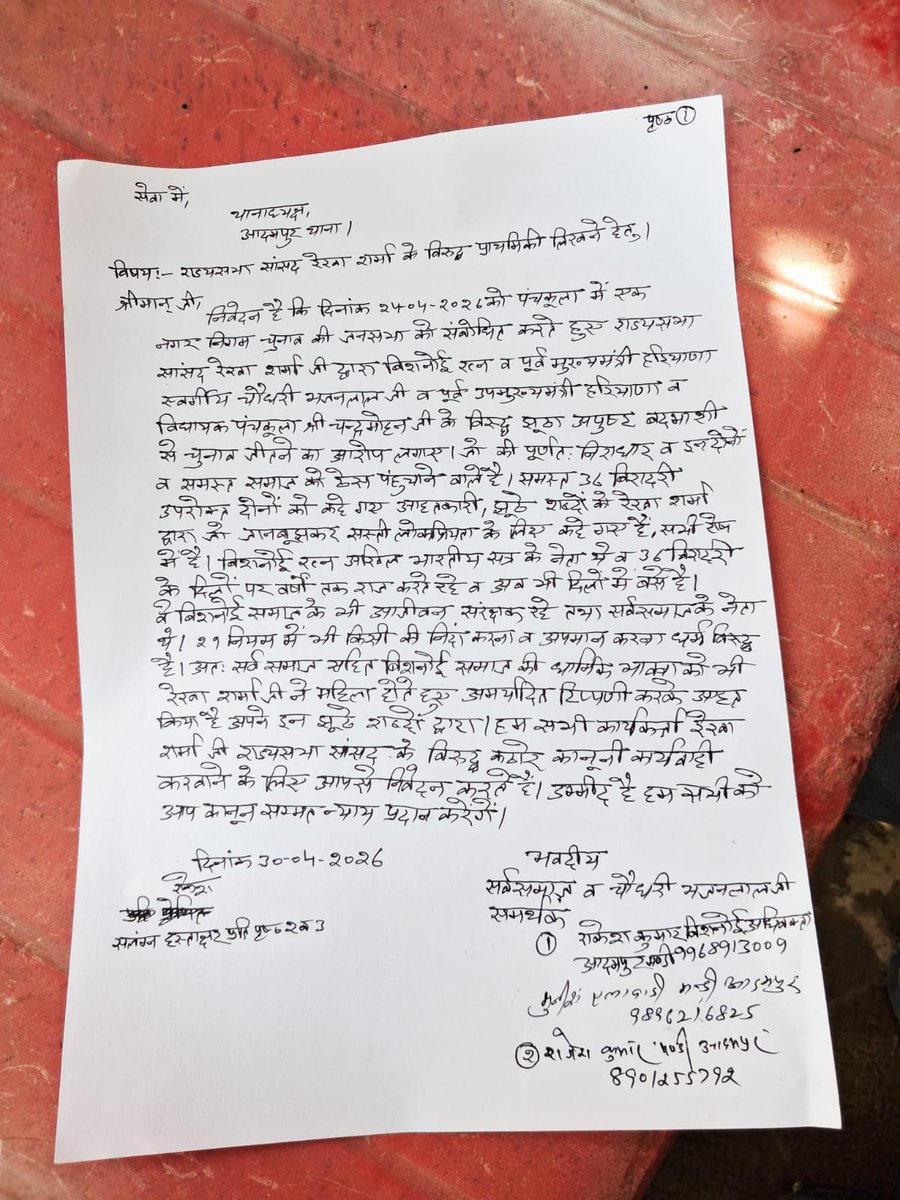 पृष्ठ ①
सेवा में,
थानाध्यक्ष,
आदमपुर थाना।
विषय:- राज्यसभा सांसद रेखा शर्मा के विरुद्ध प्राथमिकी लिखने हेतु।
श्रीमान् जी,
निवेदन है कि दिनांक 24-04-2026 को पंचकूला में एक
नगर निगम चुनाव की जनसभा को संबोधित करते हुए राज्यसभा
सांसद रेखा शर्मा जी द्वारा बिशनोई रत्न व पूर्व मुख्यमंत्री हरियाणा
स्वर्गीय चौधरी भजनलाल जी व पूर्व उपमुख्यमंत्री हरियाणा व
विधायक पंचकूला श्री चन्द्रमोहन जी के विरुद्ध झूठा अपुष्ट बदमाशी
से चुनाव जीतने का आरोप लगाए। जो की पूर्णत: निराधार व इन दोनों
व समस्त समाज को ठेस पंहुचाने वाले है। समस्त 36 बिरादरी
उपरोक्त दोनों को कहे गए आहतकारी, झूठे शब्दों के रेखा शर्मा
द्वारा जो जानबूझकर सस्ती लोकप्रियता के लिए कहे गए है, सभी रोष
में है। बिशनोई रत्न अखिल भारतीय स्तर के नेता थे व 36 बिरादरी
के दिलों पर वर्षों तक राज करते रहे व अब भी दिलों में बसे है।
वे बिशनोई समाज के भी आजीवन संरक्षक रहे तथा सर्वसमाज के नेता
थे। 29 नियम में भी किसी की निंदा करना व अपमान करना धर्म विरुद्ध
है। अत: सर्व समाज सहित बिशनोई समाज की धार्मिक भावना को भी
रेखा शर्मा जी ने महिला होते हुए अमर्यादित टिप्पणी करके आहत
किया है अपने इन झूठे शब्दों द्वारा। हम सभी कार्यकर्ता रेखा
शर्मा जी राज्यसभा सांसद के विरुद्ध कठोर कानूनी कार्यवाही
करवाने के लिए आपसे निवेदन करते हैं। उम्मीद है हम सभी को
आप कानून सम्मत न्याय प्रदान करेगें।
दिनांक 30-04-2026
भवदीय
सर्वसमाज व चौधरी भजनलाल जी
समर्थक
सलंग्न हस्ताक्षर प्रति पृष्ठ 2 व 3
① राकेश कुमार बिशनोई अधिवक्ता
आदमपुर मण्डी 9968913009
मन्डी आदमपुर
9896216825
② राजेश कुमार मण्डी आदमपुर
8901255792